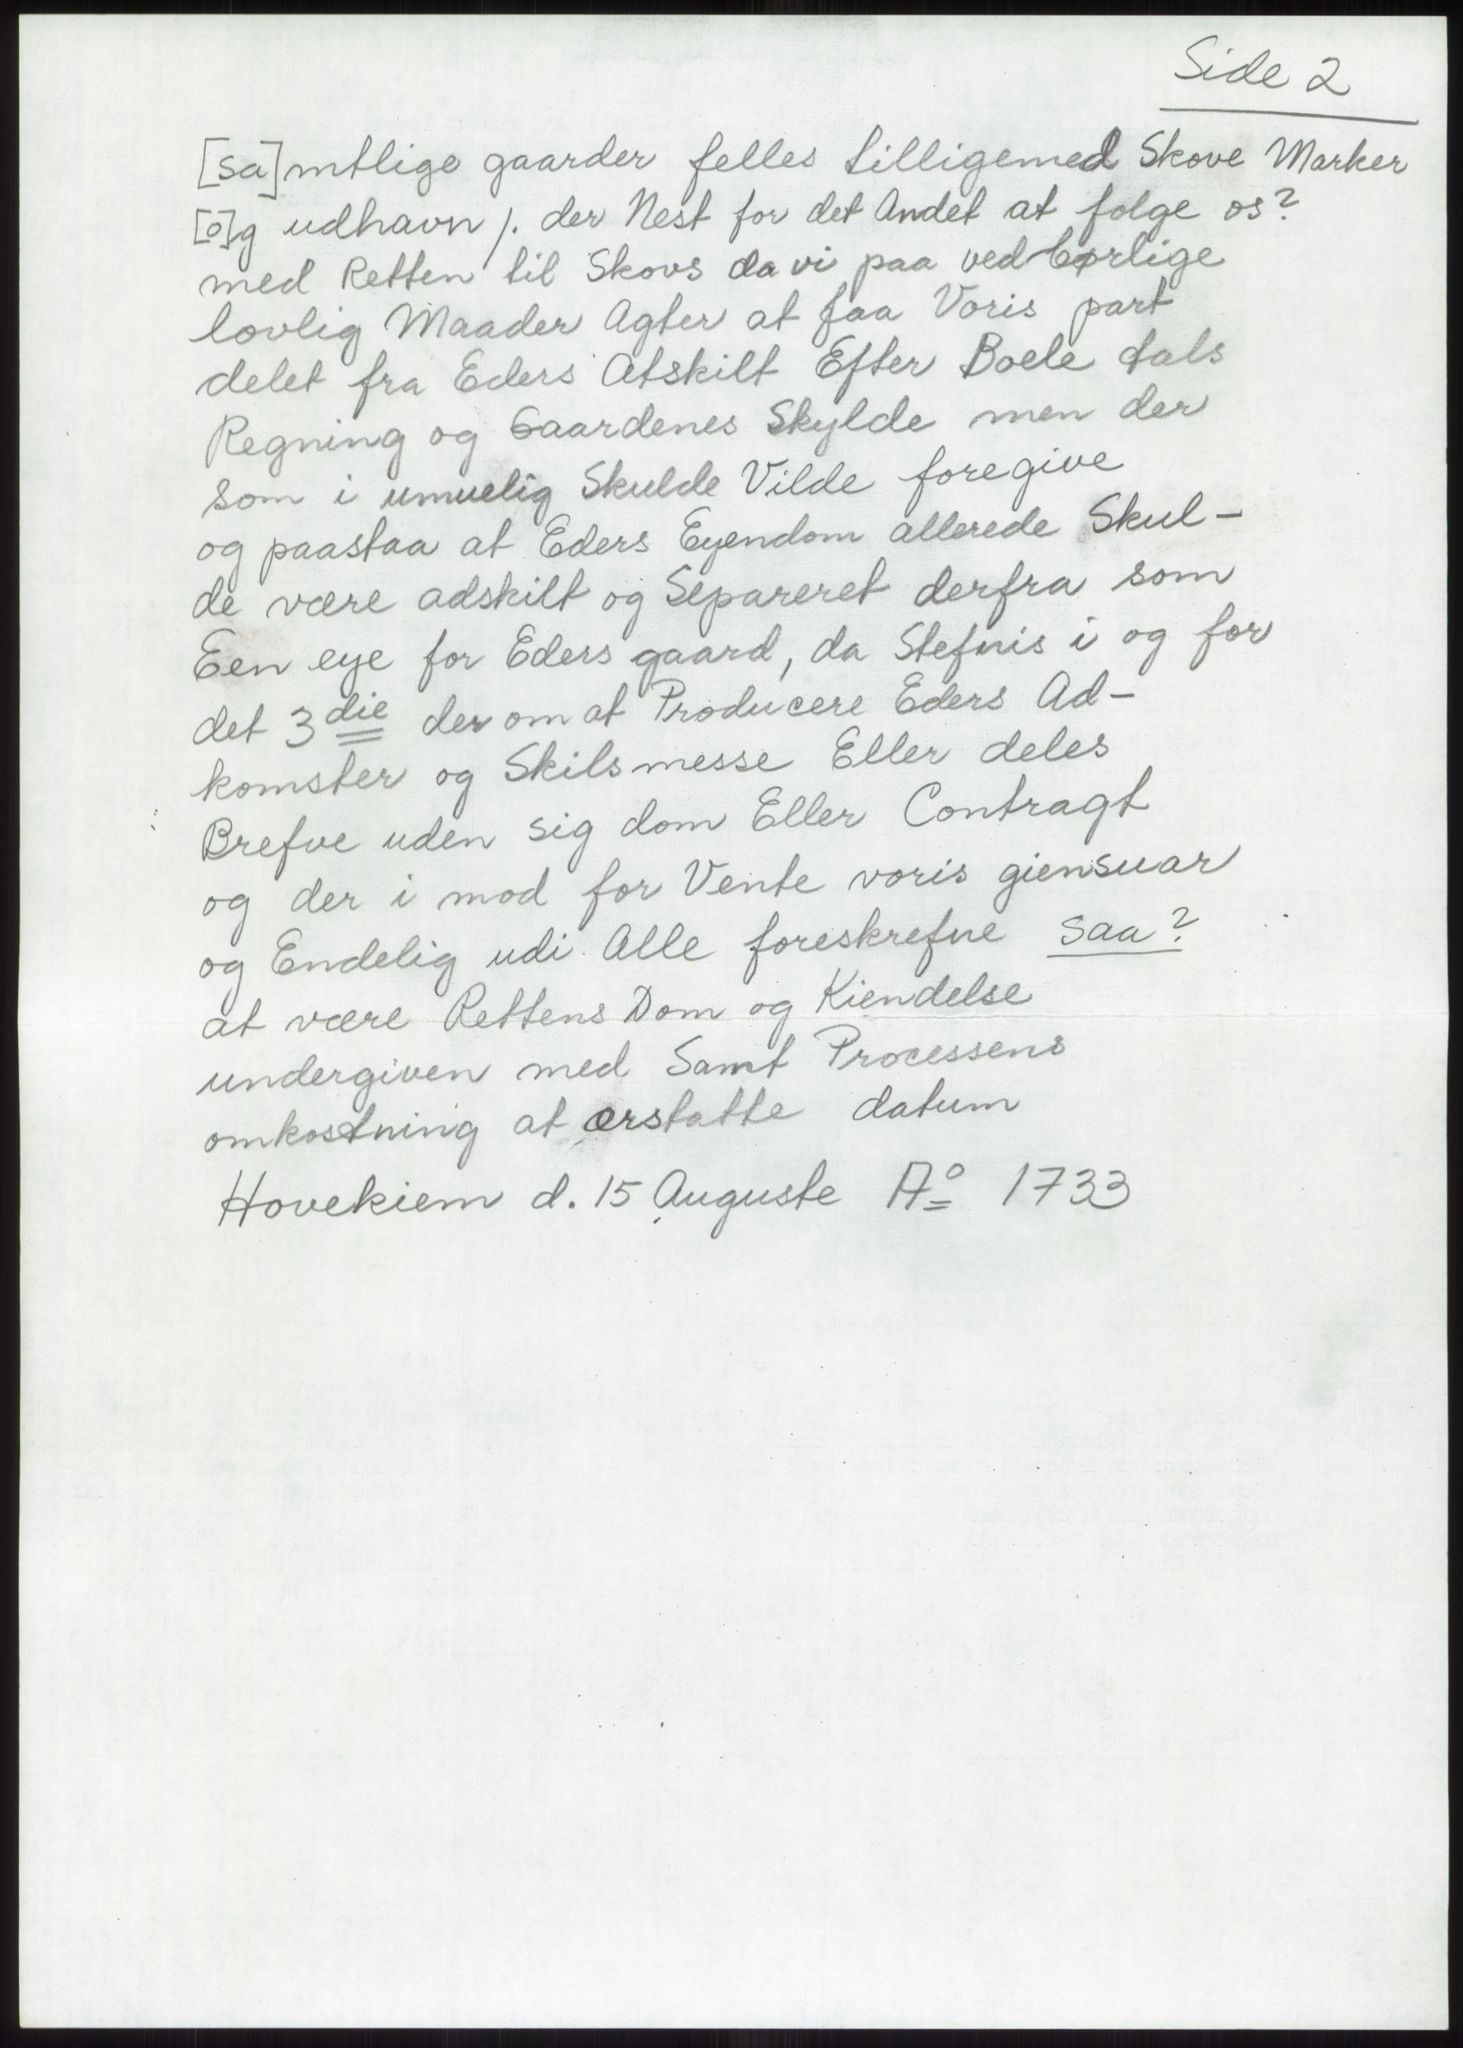 Side 2
[sa]mtlige gaarder felles tilligemed Skove Marker
[o]g udhavn /. der Nest for det Andet at følge os?
med Retten til Skovs da vi paa vedbørlige
lovlig Maader Agter at faa Voris part
delet fra Eders Atskilt Efter Boele tals
Regning og Gaardenes Skylde men der
som i umuelig Skulde Vilde foregive
og paastaa at Eders Eyendom allerede Skul-
de være adskilt og Separeret derfra som
Een eye for Eders gaard, da Stefnis i og for
det 3die der om at Producere Eders Ad-
komster og Skilsmesse Eller deles
Brefve uden sig dom Eller Contragt
og der i mod for Vente voris giensuar
og Endelig udi Alle foreskrefne saa?
at være Rettens Dom og Kiendelse
undergiven med Samt Processens
omkostning at erstatte datum
Hovekiem d. 15 Auguste Ao 1733